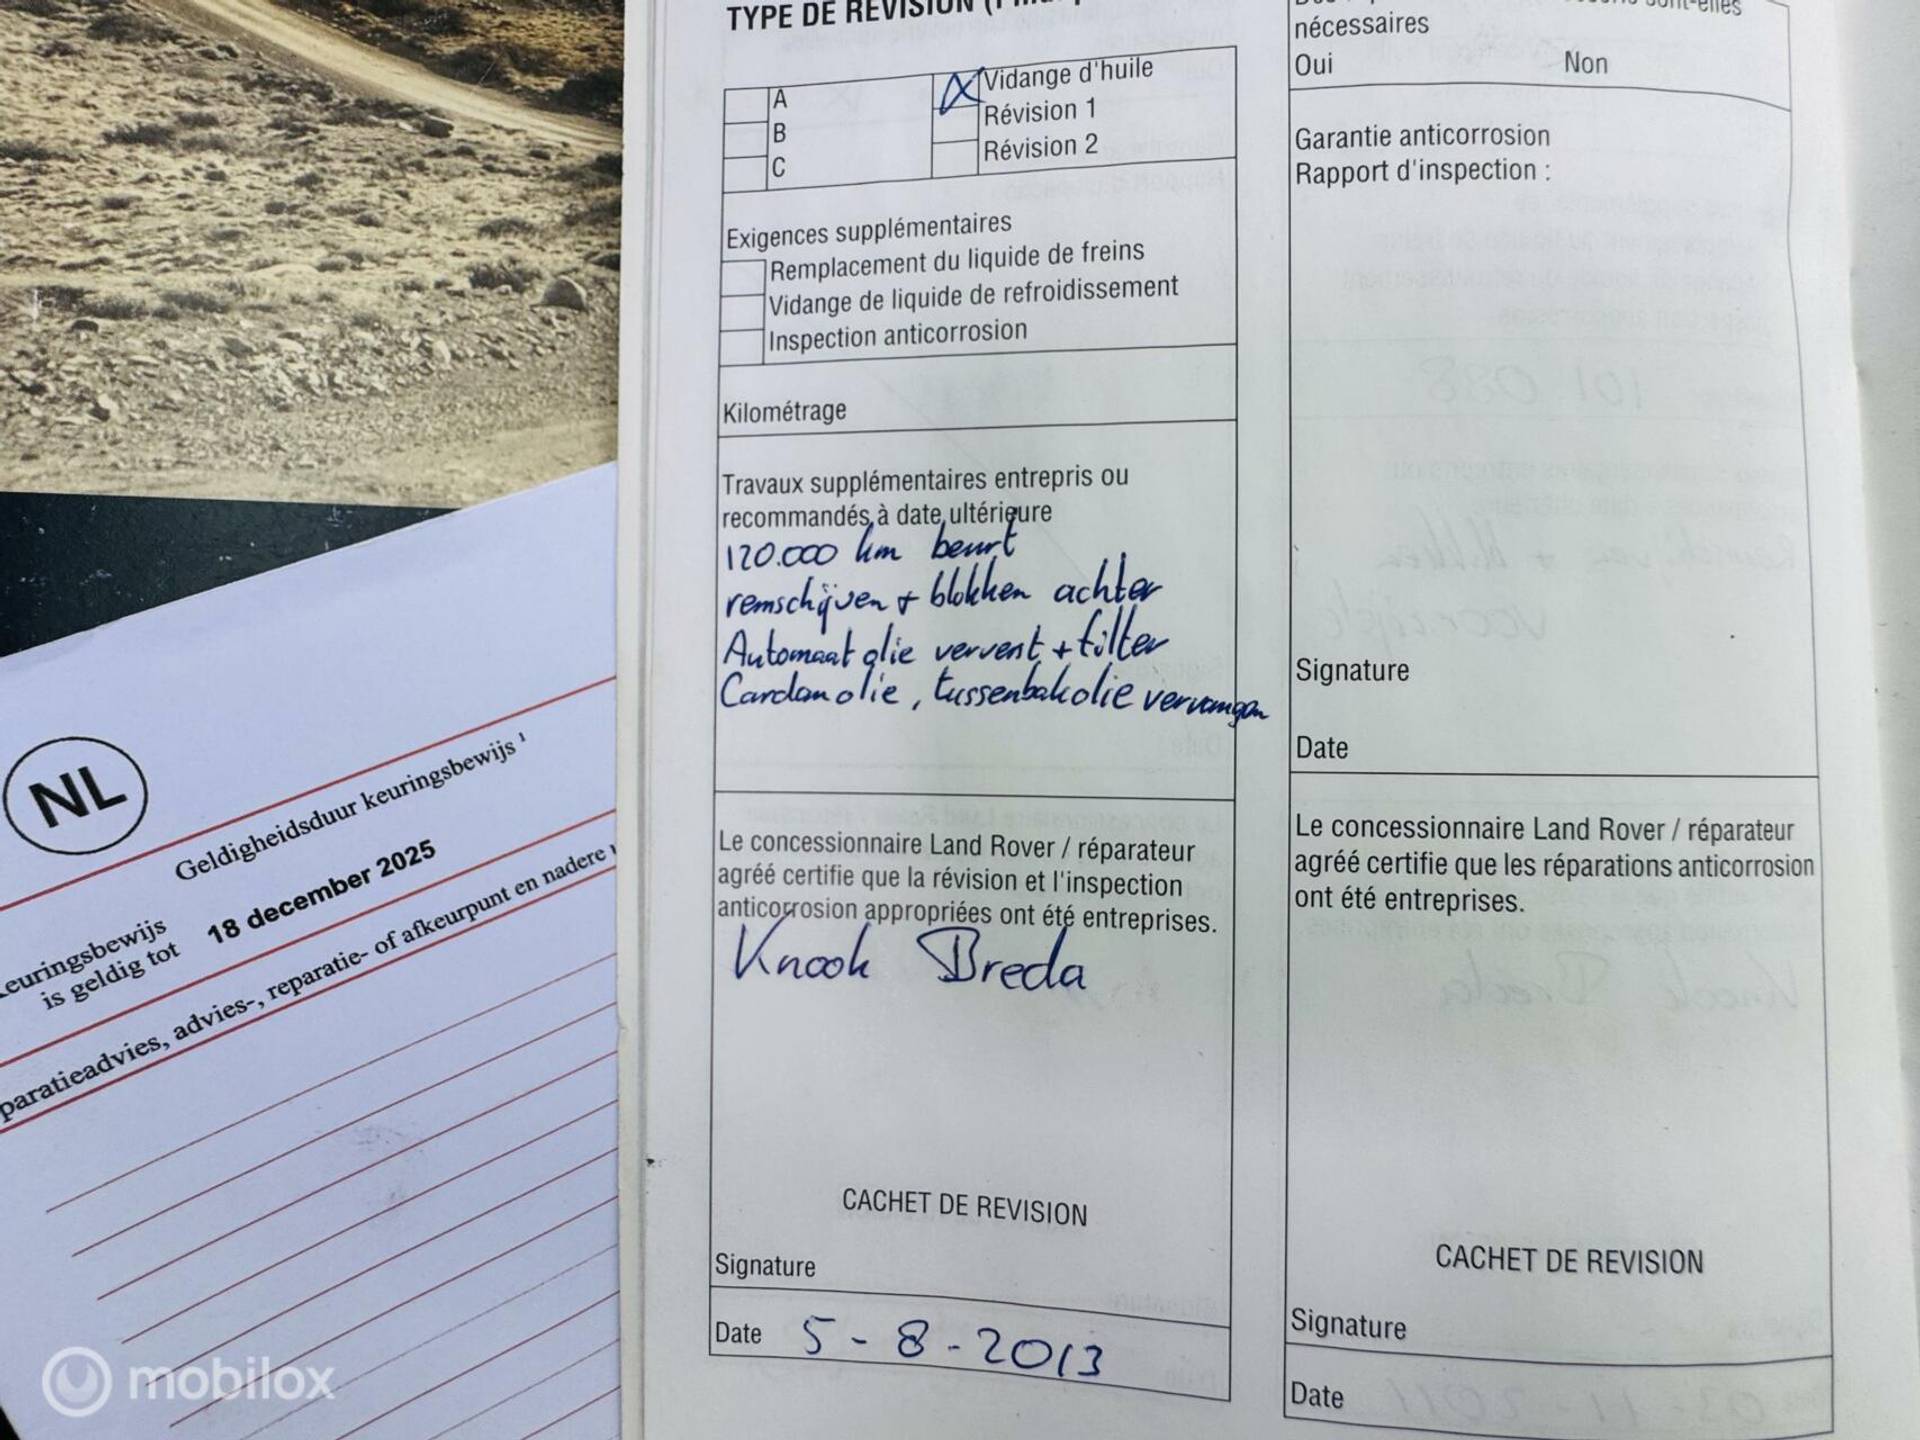 TYPE DE REVISION
A
B
C
Vidange d'huile
Révision 1
Révision 2
Exigences supplémentaires
Remplacement du liquide de freins
Vidange de liquide de refroidissement
Inspection anticorrosion
Kilométrage
Travaux supplémentaires entrepris ou
recommandés à date ultérieure
120.000 km beurt
remschijven + blokken achter
Automaat olie ververst + filter
Cardanolie, tussenbakolie vervangen
Le concessionnaire Land Rover / réparateur
agréé certifie que la révision et l'inspection
anticorrosion appropriées ont été entreprises.
Knook Breda
CACHET DE REVISION
Signature
Date 5-8-2013
sont-elles
nécessaires
Oui Non
Garantie anticorrosion
Rapport d'inspection :
Signature
Date
Le concessionnaire Land Rover / réparateur
agréé certifie que les réparations anticorrosion
ont été entreprises.
CACHET DE REVISION
Signature
Date
NL
Geldigheidsduur keuringsbewijs ¹
keuringsbewijs
is geldig tot 18 december 2025
paratieadvies, advies-, reparatie- of afkeurpunt en nadere
mobilox